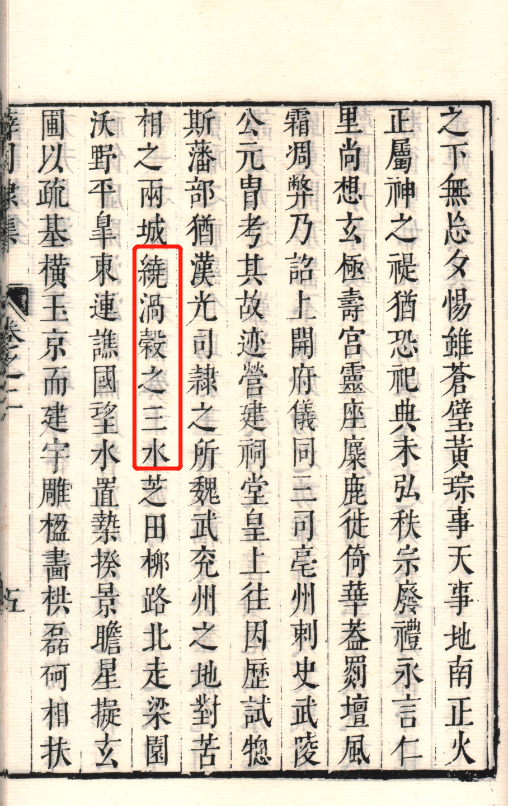 之下無忘夕惕雖蒼璧黃琮事天事地南正火
正屬神之禔猶恐祀典未弘秩宗廢禮永言仁
里尚想玄極壽宮靈座麋鹿徙倚華蓋罽壇風
霜凋弊乃詔上開府儀同三司亳州刺史武陵
公元胄考其故迹營建祠堂皇上往因歷試惣
斯藩部猶漢光司隸之所魏武兖州之地對苦
相之兩城繞渦穀之三水芝田柳路北走梁園
沃野平臯東連譙國望水置槷揆景瞻星擬玄
圃以疏基橫玉京而建字雕楹畵栱磊砢相扶
卷之二
五